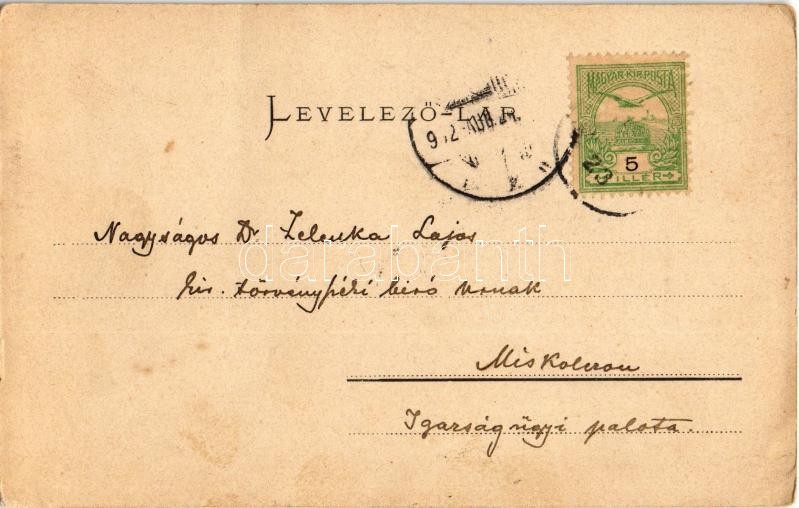 MAGYAR·KIR·POSTA
LEVELEZŐ-LAP
5
FILLÉR
Nagyságos Dr Zelenka Lajos
kir. törvényszéki biró Urnak
Miskolczon
Igazságügyi palota.
darabanth